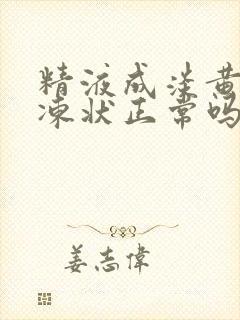 精液成淡黄
凍状正常吗
姜志偉